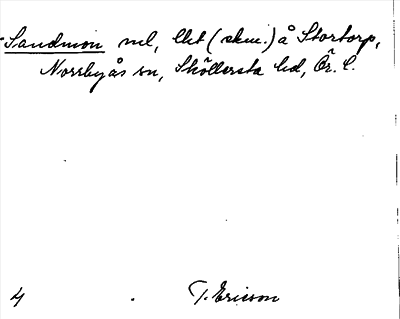 Sandmon nel, lht (skm.) å Stortorp,
Norrbyås sn, Sköllersta hd, Ör. l.
4 T. Ericson